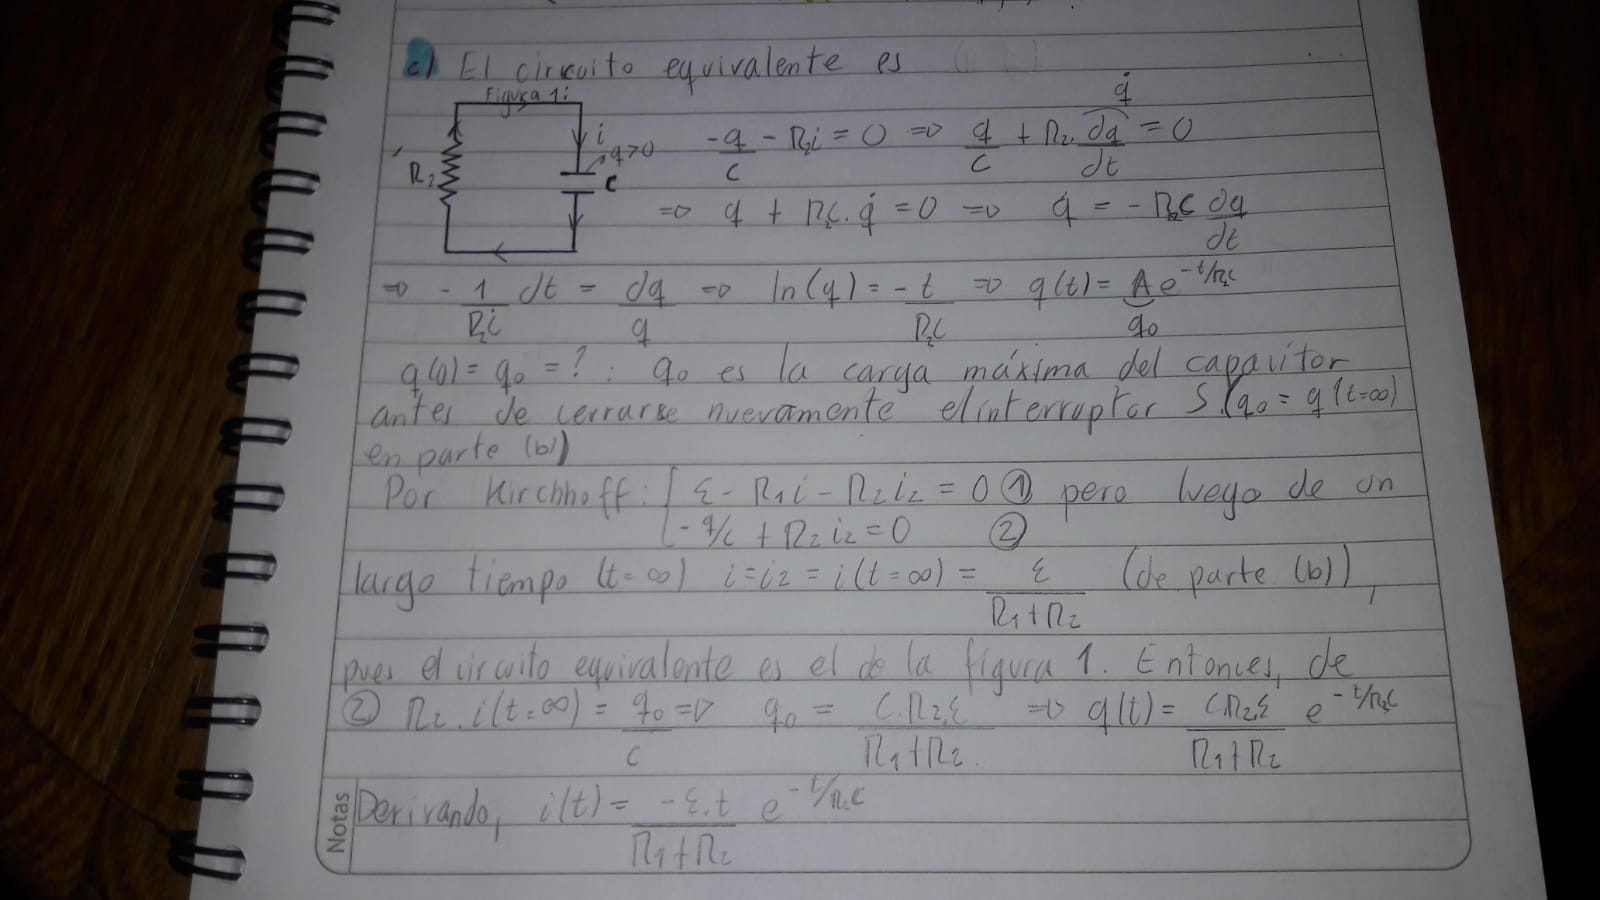 c) El circuito equivalente es
Figura 1:
i
q>0
R₂
c
-q/c - R₂i = 0 => q/c + R₂. dq/dt = 0
q̇
=> q + R₂C. q̇ = 0 => q = - R₂C dq/dt
=> - 1/R₂C dt = dq/q => ln(q) = - t/R₂C => q(t) = A e^{-t/R₂C}
q₀
q(0) = q₀ = ? : q₀ es la carga máxima del capacitor
antes de cerrarse nuevamente el interruptor S. (q₀ = q(t=∞)
en parte (b))
Por Kirchhoff: { ε - R₁i - R₂i₂ = 0 ① pero luego de un
-q/c + R₂i₂ = 0 ②
largo tiempo (t=∞) i = i₂ = i(t=∞) = ε/(R₁+R₂) (de parte (b)),
pues el circuito equivalente es el de la figura 1. Entonces, de
② R₂.i(t=∞) = q₀/c => q₀ = C.R₂.ε/(R₁+R₂) => q(t) = C.R₂.ε/(R₁+R₂) e^{-t/R₂C}
Derivando, i(t) = -ε.t/(R₁+R₂) e^{-t/R₂C}
Notas